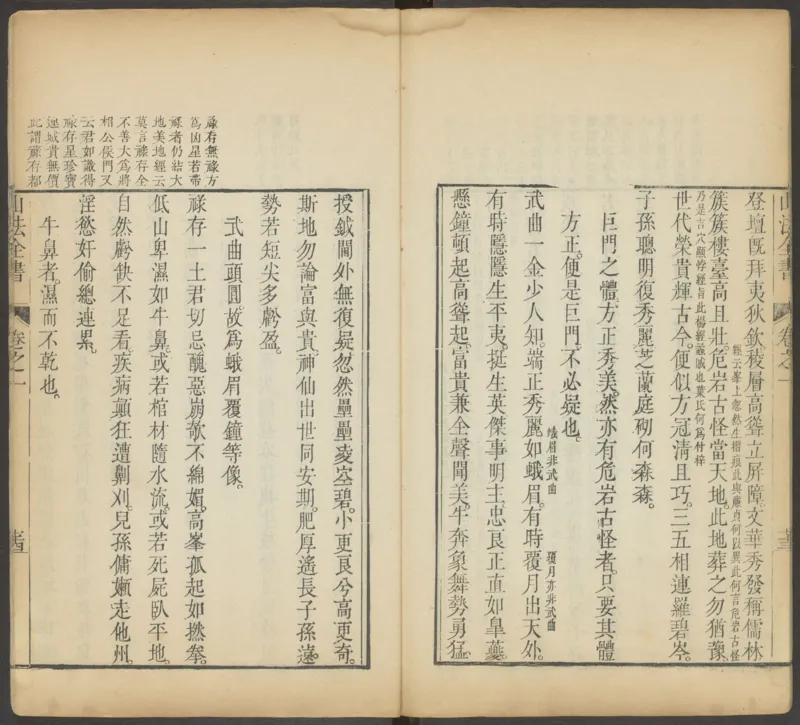 登壇旣拜夷狄欽稜層高聳立屏障文華秀發稱儒林
經云峯上忽然生摺痕此與廉貞何以異此何言危岩古怪
簇簇樓臺高且壯危岩古怪當天地此地葬之勿猶豫
世代榮貴輝古今便似方冠淸且巧三五相連羅碧岑
子孫聰明復秀麗芝蘭庭砌何森森
巨門之體方正秀美然亦有危岩古怪者只要其體
方正便是巨門不必疑也
武曲一金少人知端正秀麗如蛾眉有時覆月出天外
蛾眉非武曲
覆月亦非武曲
有時隱隱生平夷挺生英傑事明主忠良正直如皐夔
懸鐘頓起高聳起富貴兼全聲聞美牛奔象舞勢勇猛
山法全書
卷之一
投鉞閫外無復疑忽然壘壘凌空碧小更良兮高更奇
斯地勿論富與貴神仙出世同安期肥厚遙長子孫遠
勢若短尖多虧盈
武曲頭圓故爲蛾眉覆鐘等像
祿存一土君切忌醜惡崩欹不綿媚高峯孤起如撚拳
低山卑濕如牛鼻或若棺材隨水流或若死屍臥平地
自然虧缺不足看疾病顛狂遭劓刖兒孫傭嬾走他州
淫慾奸偷總連累
牛鼻者濕而不乾也
祿存無祿方
爲凶星若帶
祿者仍結大
地美地經云
莫言祿存全
不善大爲將
相公侯門又
云君如識得
祿存星珍寶
連城貴無價
此謂祿存都
山法全書
卷之一